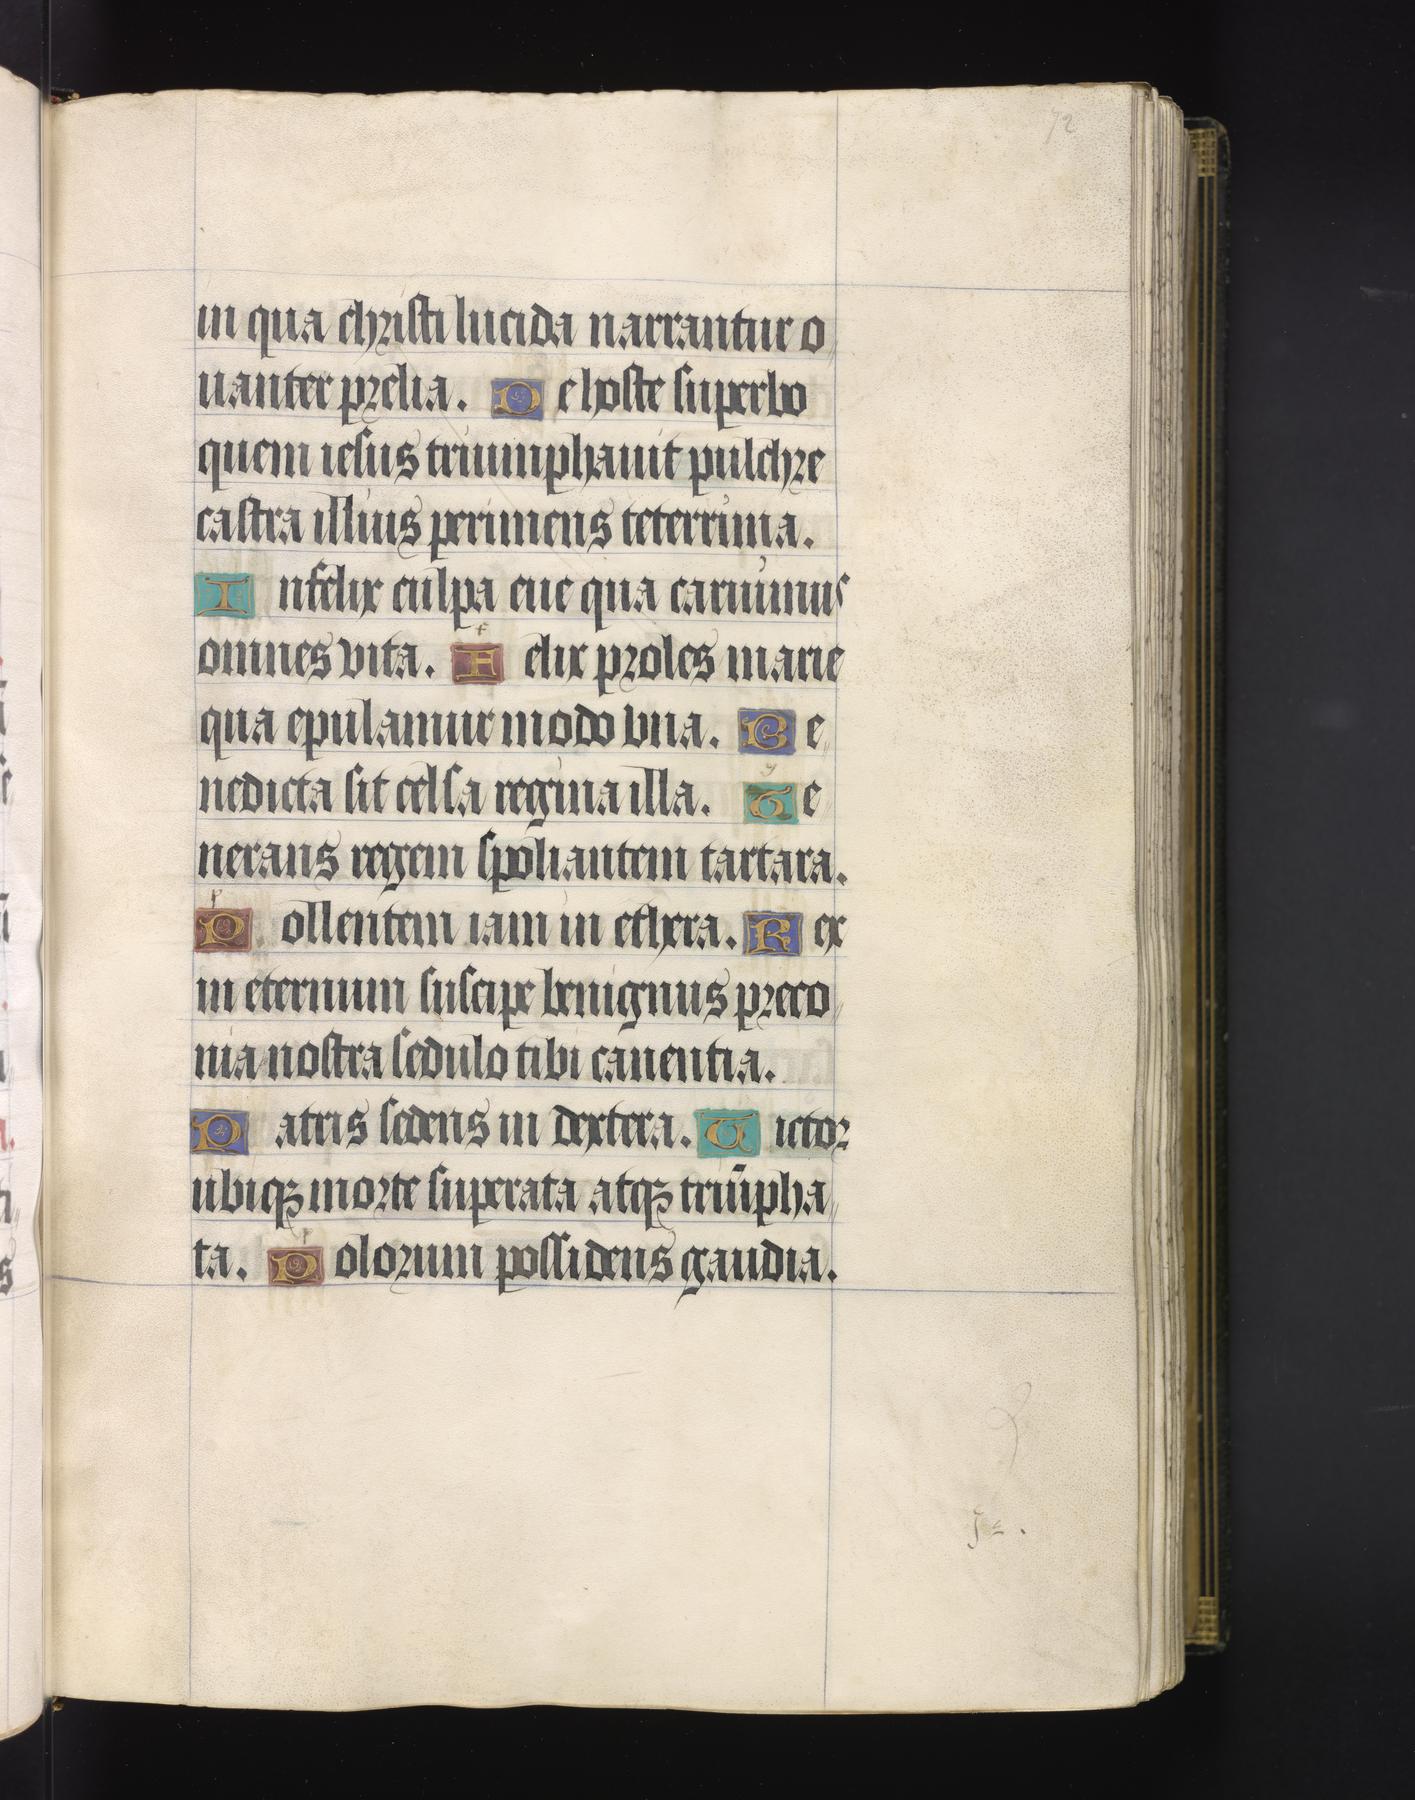 72
in qua christi lucida narrantur o
uanter prelia. De hoste superbo
quem iesus triumphauit pulchre
castra illius perimens teterrima.
Infelix culpa eue qua caruimus
omnes vita. Felix proles marie
qua epulamur modo vna. Be
nedicta sit celsa regina illa. Ge
nerans regem spoliantem tartara.
Pollentem iam in ethera. Rex
in eternum suscipe benignus preco
nia nostra sedulo tibi canentia.
Patris sedens in dextera. Victor
ubiqꝫ morte superata atqꝫ triūpha
ta. Polorum possidens gaudia.